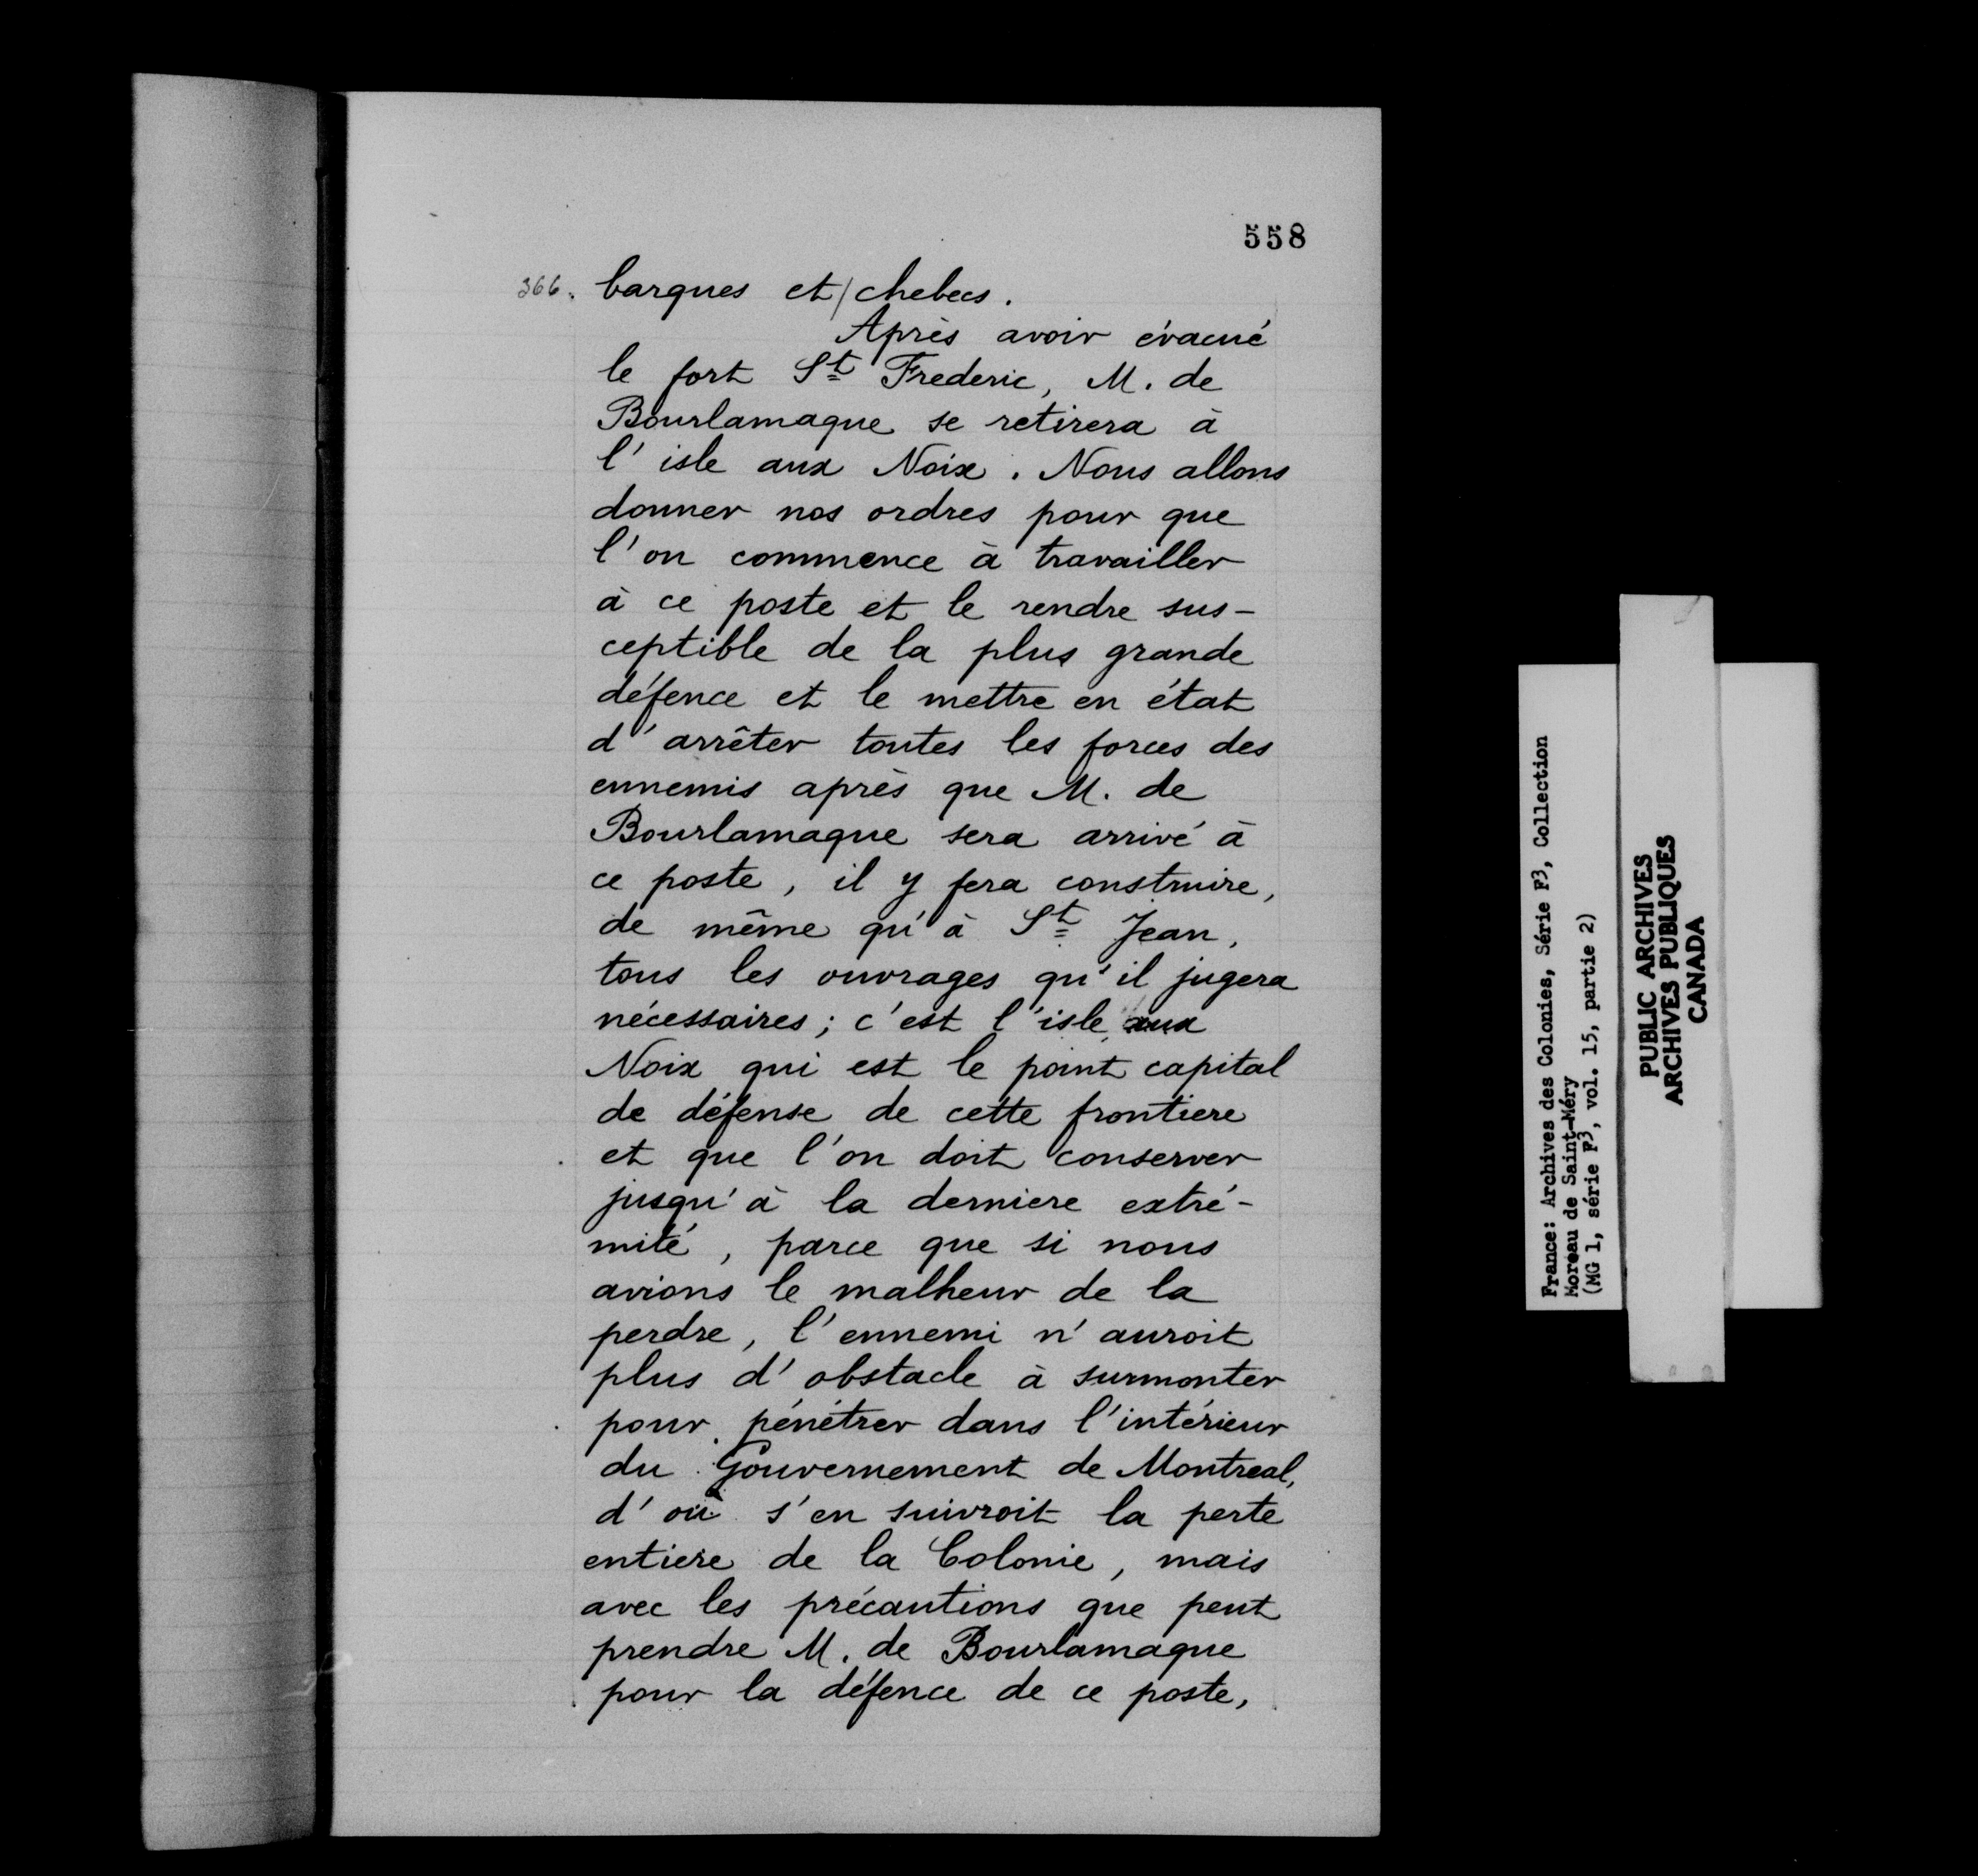 558
366. barques et/chebecs.
Après avoir évacué
le fort St Frederic, M. de
Bourlamaque se retirera à
l'isle aux Noix. Nous allons
donner nos ordres pour que
l'on commence à travailler
à ce poste et le rendre sus-
ceptible de la plus grande
défence et le mettre en état
d'arrêter toutes les forces des
ennemis après que M. de
Bourlamaque sera arrivé à
ce poste, il y fera construire,
de même qu'à St Jean,
tous les ouvrages qu'il jugera
nécessaires; c'est l'isle aux
Noix qui est le point capital
de défense de cette frontiere
et que l'on doit conserver
jusqu'à la derniere extré-
mité, parce que si nous
avions le malheur de la
perdre, l'ennemi n'auroit
plus d'obstacle à surmonter
pour pénétrer dans l'intérieur
du Gouvernement de Montreal,
d'où s'en suivroit la perte
entiere de la Colonie, mais
avec les précautions que peut
prendre M. de Bourlamaque
pour la défence de ce poste,
France: Archives des Colonies, Série F3, Collection
Moreau de Saint-Méry
(MG 1, série F3, vol. 15, partie 2)
PUBLIC ARCHIVES
ARCHIVES PUBLIQUES
CANADA